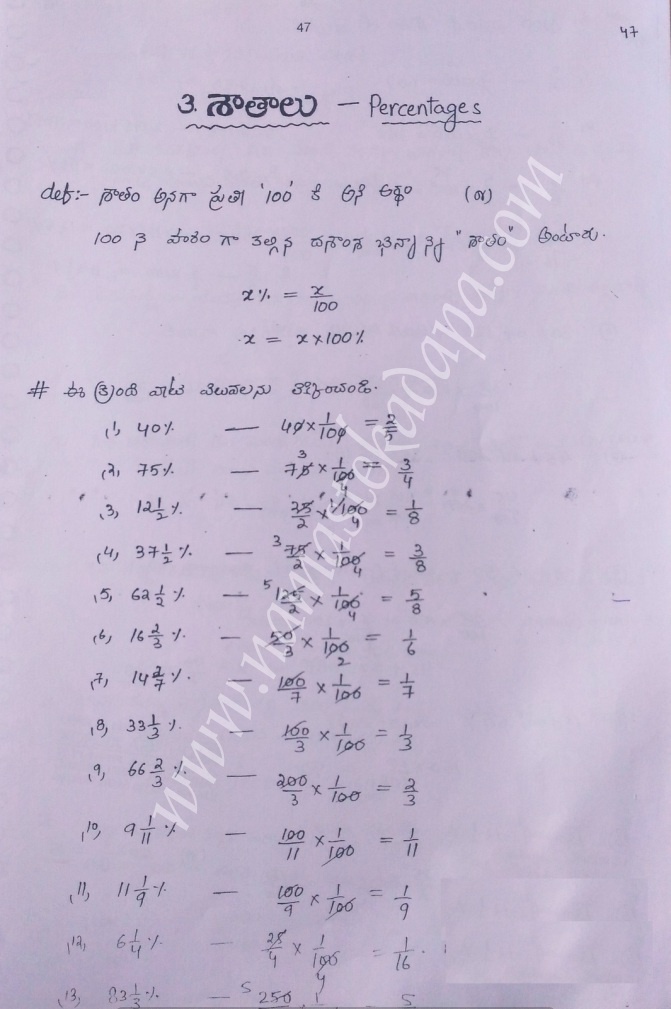 47
47
3. శాతాలు — Percentages
def:- శాతం అనగా ప్రతి '100' కి అని అర్థం (or)
100 ని హారం గా కల్గిన దశాంశ భిన్నాన్ని "శాతం" అంటారు.
x% = x/100
x = x×100%
# ఈ క్రింది వాటి విలువలను కన్గొనండి.
(1, 40% — 40 × 1/100 = 2/5
(2, 75% — 3 75 × 1/100 4 = 3/4
(3, 12 1/2 % — 25/2 × 1/100 4 = 1/8
(4, 37 1/2 % — 3 75/2 × 1/100 4 = 3/8
(5, 62 1/2 % — 5 125/2 × 1/100 4 = 5/8
(6, 16 2/3 % — 50/3 × 1/100 2 = 1/6
(7, 14 2/7 % — 100/7 × 1/100 = 1/7
(8, 33 1/3 % — 100/3 × 1/100 = 1/3
(9, 66 2/3 % — 200/3 × 1/100 = 2/3
(10, 9 1/11 % — 100/11 × 1/100 = 1/11
(11, 11 1/9 % — 100/9 × 1/100 = 1/9
(12, 6 1/4 % — 25/4 × 1/100 4 = 1/16
(13, 83 1/3 % — 5 250 1 5
www.namastekadapa.com